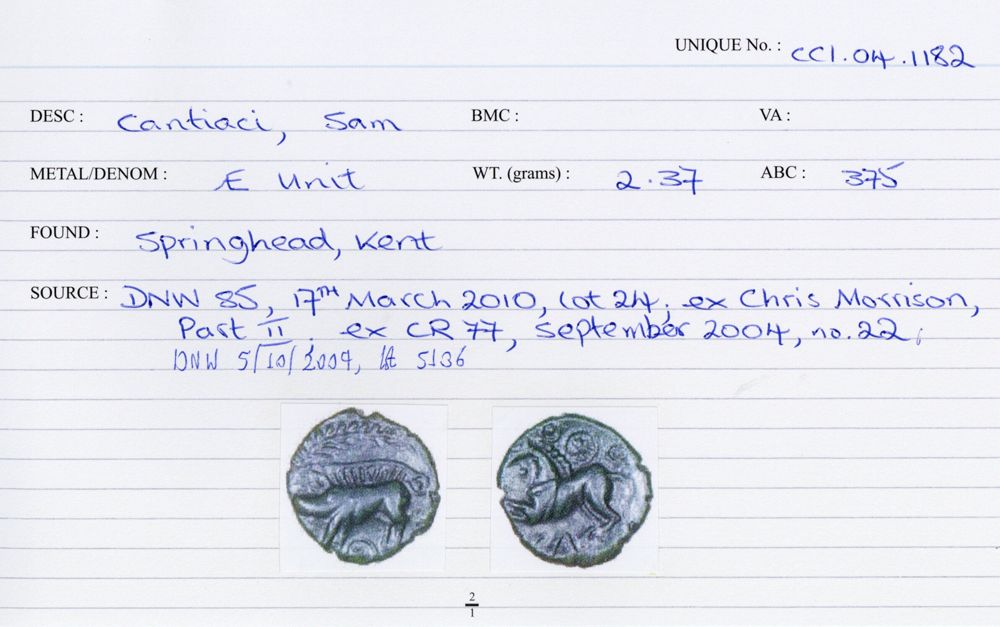 UNIQUE No. : CCI.04.1182
DESC : Cantiaci, Sam BMC : VA :
METAL/DENOM : Æ Unit WT. (grams) : 2.37 ABC : 375
FOUND : Springhead, Kent
SOURCE : DNW 85, 17TH March 2010, lot 24; ex Chris Morrison,
Part II. ex CR 77, September 2004, no.22;
DNW 5/10/2009, lot 5136
2
1